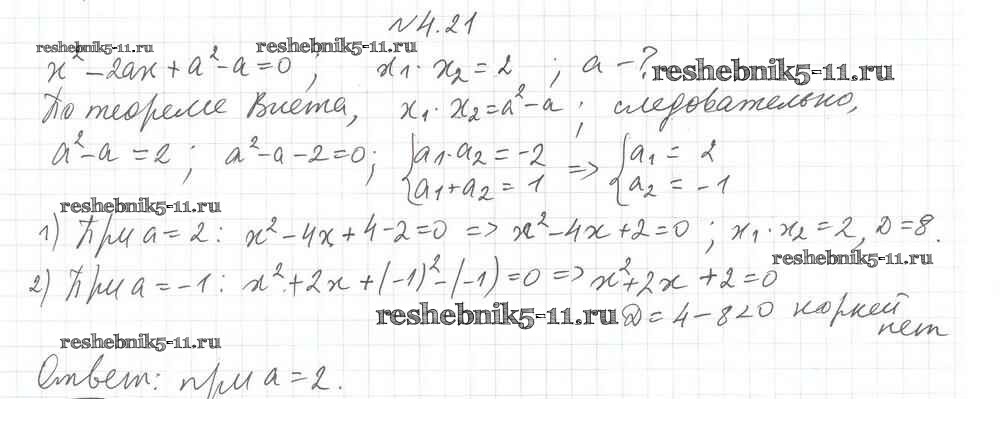 №4.21
reshebnik5-11.ru reshebnik5-11.ru
x² - 2ax + a² - a = 0 ; x₁ · x₂ = 2 ; a - ? reshebnik5-11.ru
По теореме Виета, x₁ · x₂ = a² - a ; следовательно,
a² - a = 2 ; a² - a - 2 = 0 ; { a₁ · a₂ = -2 => { a₁ = 2
a₁ + a₂ = 1 a₂ = -1
reshebnik5-11.ru
1) При a = 2 : x² - 4x + 4 - 2 = 0 => x² - 4x + 2 = 0 ; x₁ · x₂ = 2, D = 8.
reshebnik5-11.ru
2) При a = -1 : x² + 2x + (-1)² - (-1) = 0 => x² + 2x + 2 = 0
reshebnik5-11.ru D = 4 - 8 < 0 корней
нет
reshebnik5-11.ru
Ответ: при a = 2.